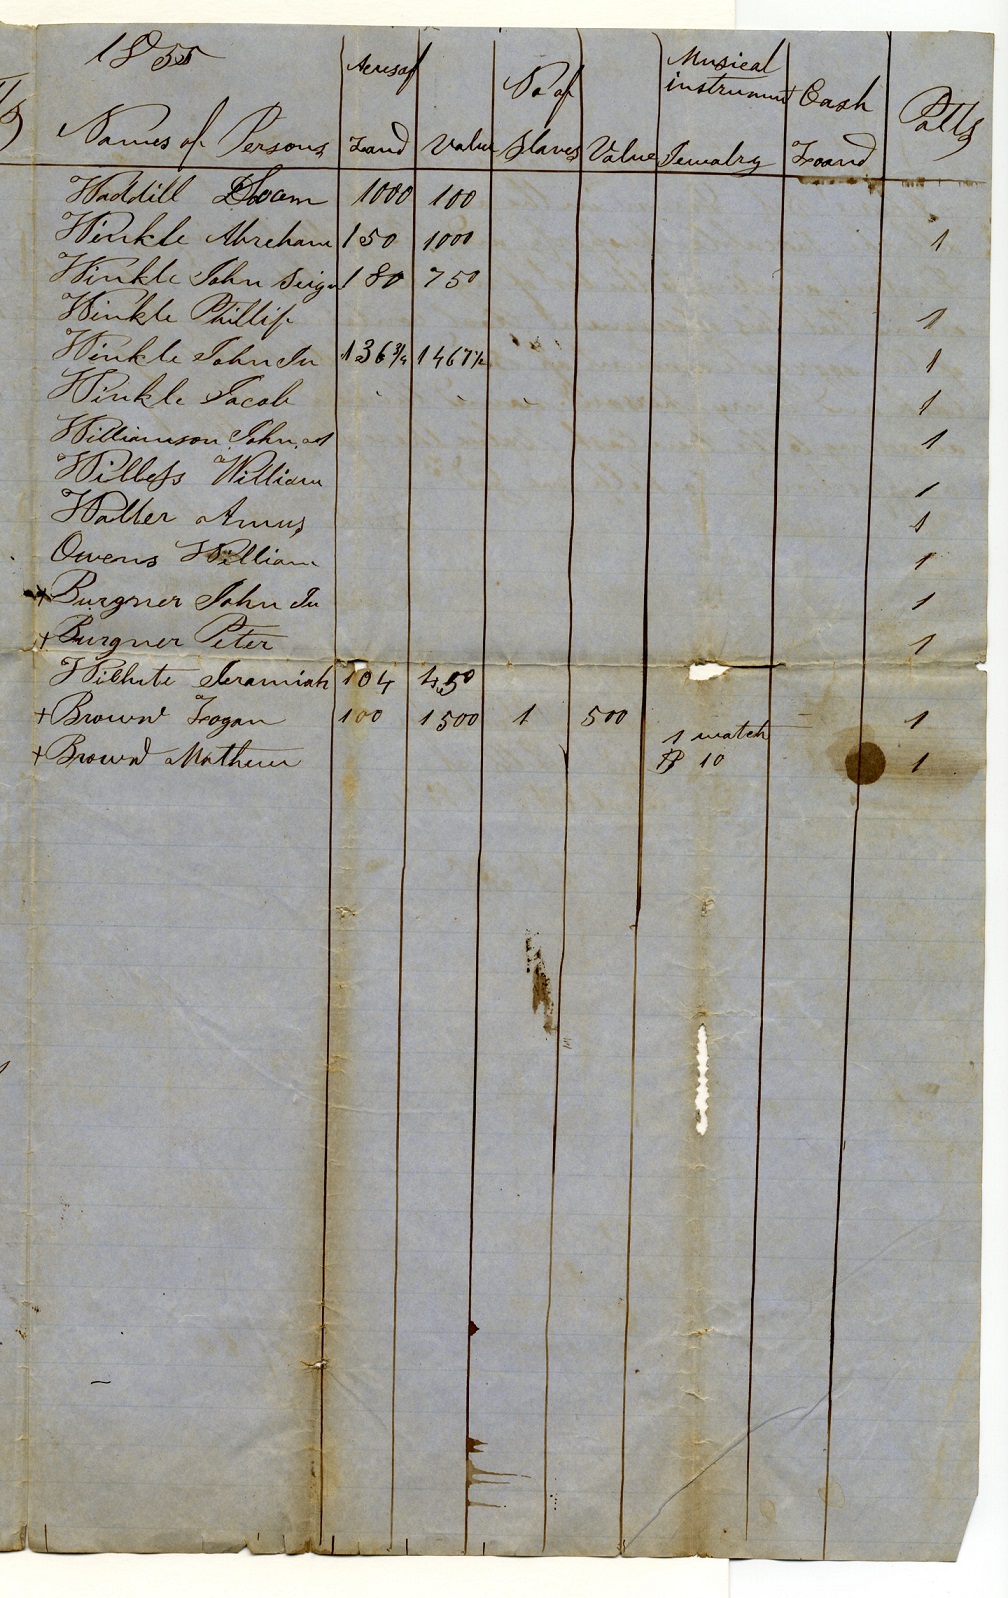 1855
Names of Persons Acres of Land Value No of Slaves Value Musical instrument Jewalry Cash Loand Polls
Waddill 1000 100
Winkle Abreham 150 1000 1
Winkle John Seign 180 750
Winkle Phillip 1
Winkle John Jr 136 3/4 1467 1/2 1
Winkle Jacob 1
Williamson John A 1
Willess William 1
Walter Amus 1
Owens William 1
+ Burgner John Jr 1
+ Burgner Peter 1
Wilhite Jeramiah 104 450
+ Brown Logan 100 1500 1 500 1
+ Brown Mathew 1 watch $ 10 1